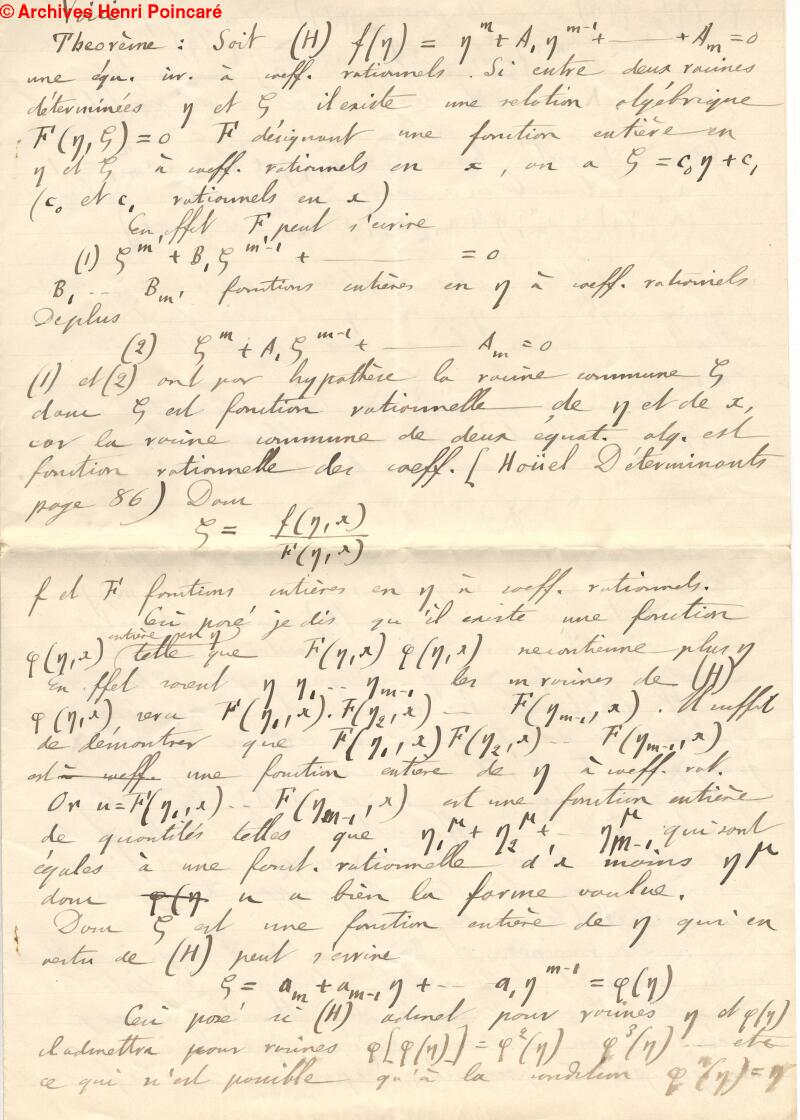 © Archives Henri Poincaré
Voici
Theorème : Soit (H) f(η) = η^m + A₁ η^{m-1} + ——— + A_m = 0
une équ. irr. à coeff. rationnels. Si entre deux racines
déterminées η et ζ il existe une relation algébrique
F(η, ζ) = 0 F désignant une fonction entière en
η et ζ à coeff. rationnels en x, on a ζ = c₀ η + c₁
(c₀ et c₁ rationnels en x)
En effet F peut s'écrire
(1) ζ^{m'} + B₁ ζ^{m'-1} + ——— = 0
B₁ ... B_{m'} fonctions entières en η à coeff. rationnels
De plus
(2) ζ^m + A₁ ζ^{m-1} + ——— A_m = 0
(1) et (2) ont par hypothèse la racine commune ζ
donc ζ est fonction rationnelle de η et de x,
car la racine commune de deux équat. alg. est
fonction rationnelle des coeff. [Hoüel Déterminants
page 86) Donc
ζ = f(η, x) / F(η, x)
f et F fonctions entières en η à coeff. rationnels.
Ceci posé je dis qu'il existe une fonction
φ(η, x) entière en η telle que F(η, x) φ(η, x) necontienne plus η
En effet soient η η₁ ... η_{m-1} les m racines de (H)
φ(η, x) sera F(η₁, x) . F(η₂, x) ... F(η_{m-1}, x) . Il suffit
de démontrer que F(η₁, x) F(η₂, x) ... F(η_{m-1}, x)
est à coeff. une fonction entière de η à coeff. rat.
Or u = F(η₁, x) ... F(η_{m-1}, x) est une fonction entière
de quantités telles que η₁^μ + η₂^μ + ... η_{m-1}^μ qui sont
égales à une fonct. rationnelle d'x moins η^μ
donc φ(η u a bien la forme voulue.
Donc ζ est une fonction entière de η qui en
vertu de (H) peut s'écrire
ζ = a_m + a_{m-1} η + ... a₁ η^{m-1} = φ(η)
Ceci posé si (H) admet pour racines η et φ(η)
il admettra pour racines φ[φ(η)] = φ²(η) φ³(η) ... etc
ce qui n'est possible qu'à la condition φⁿ(η) = η